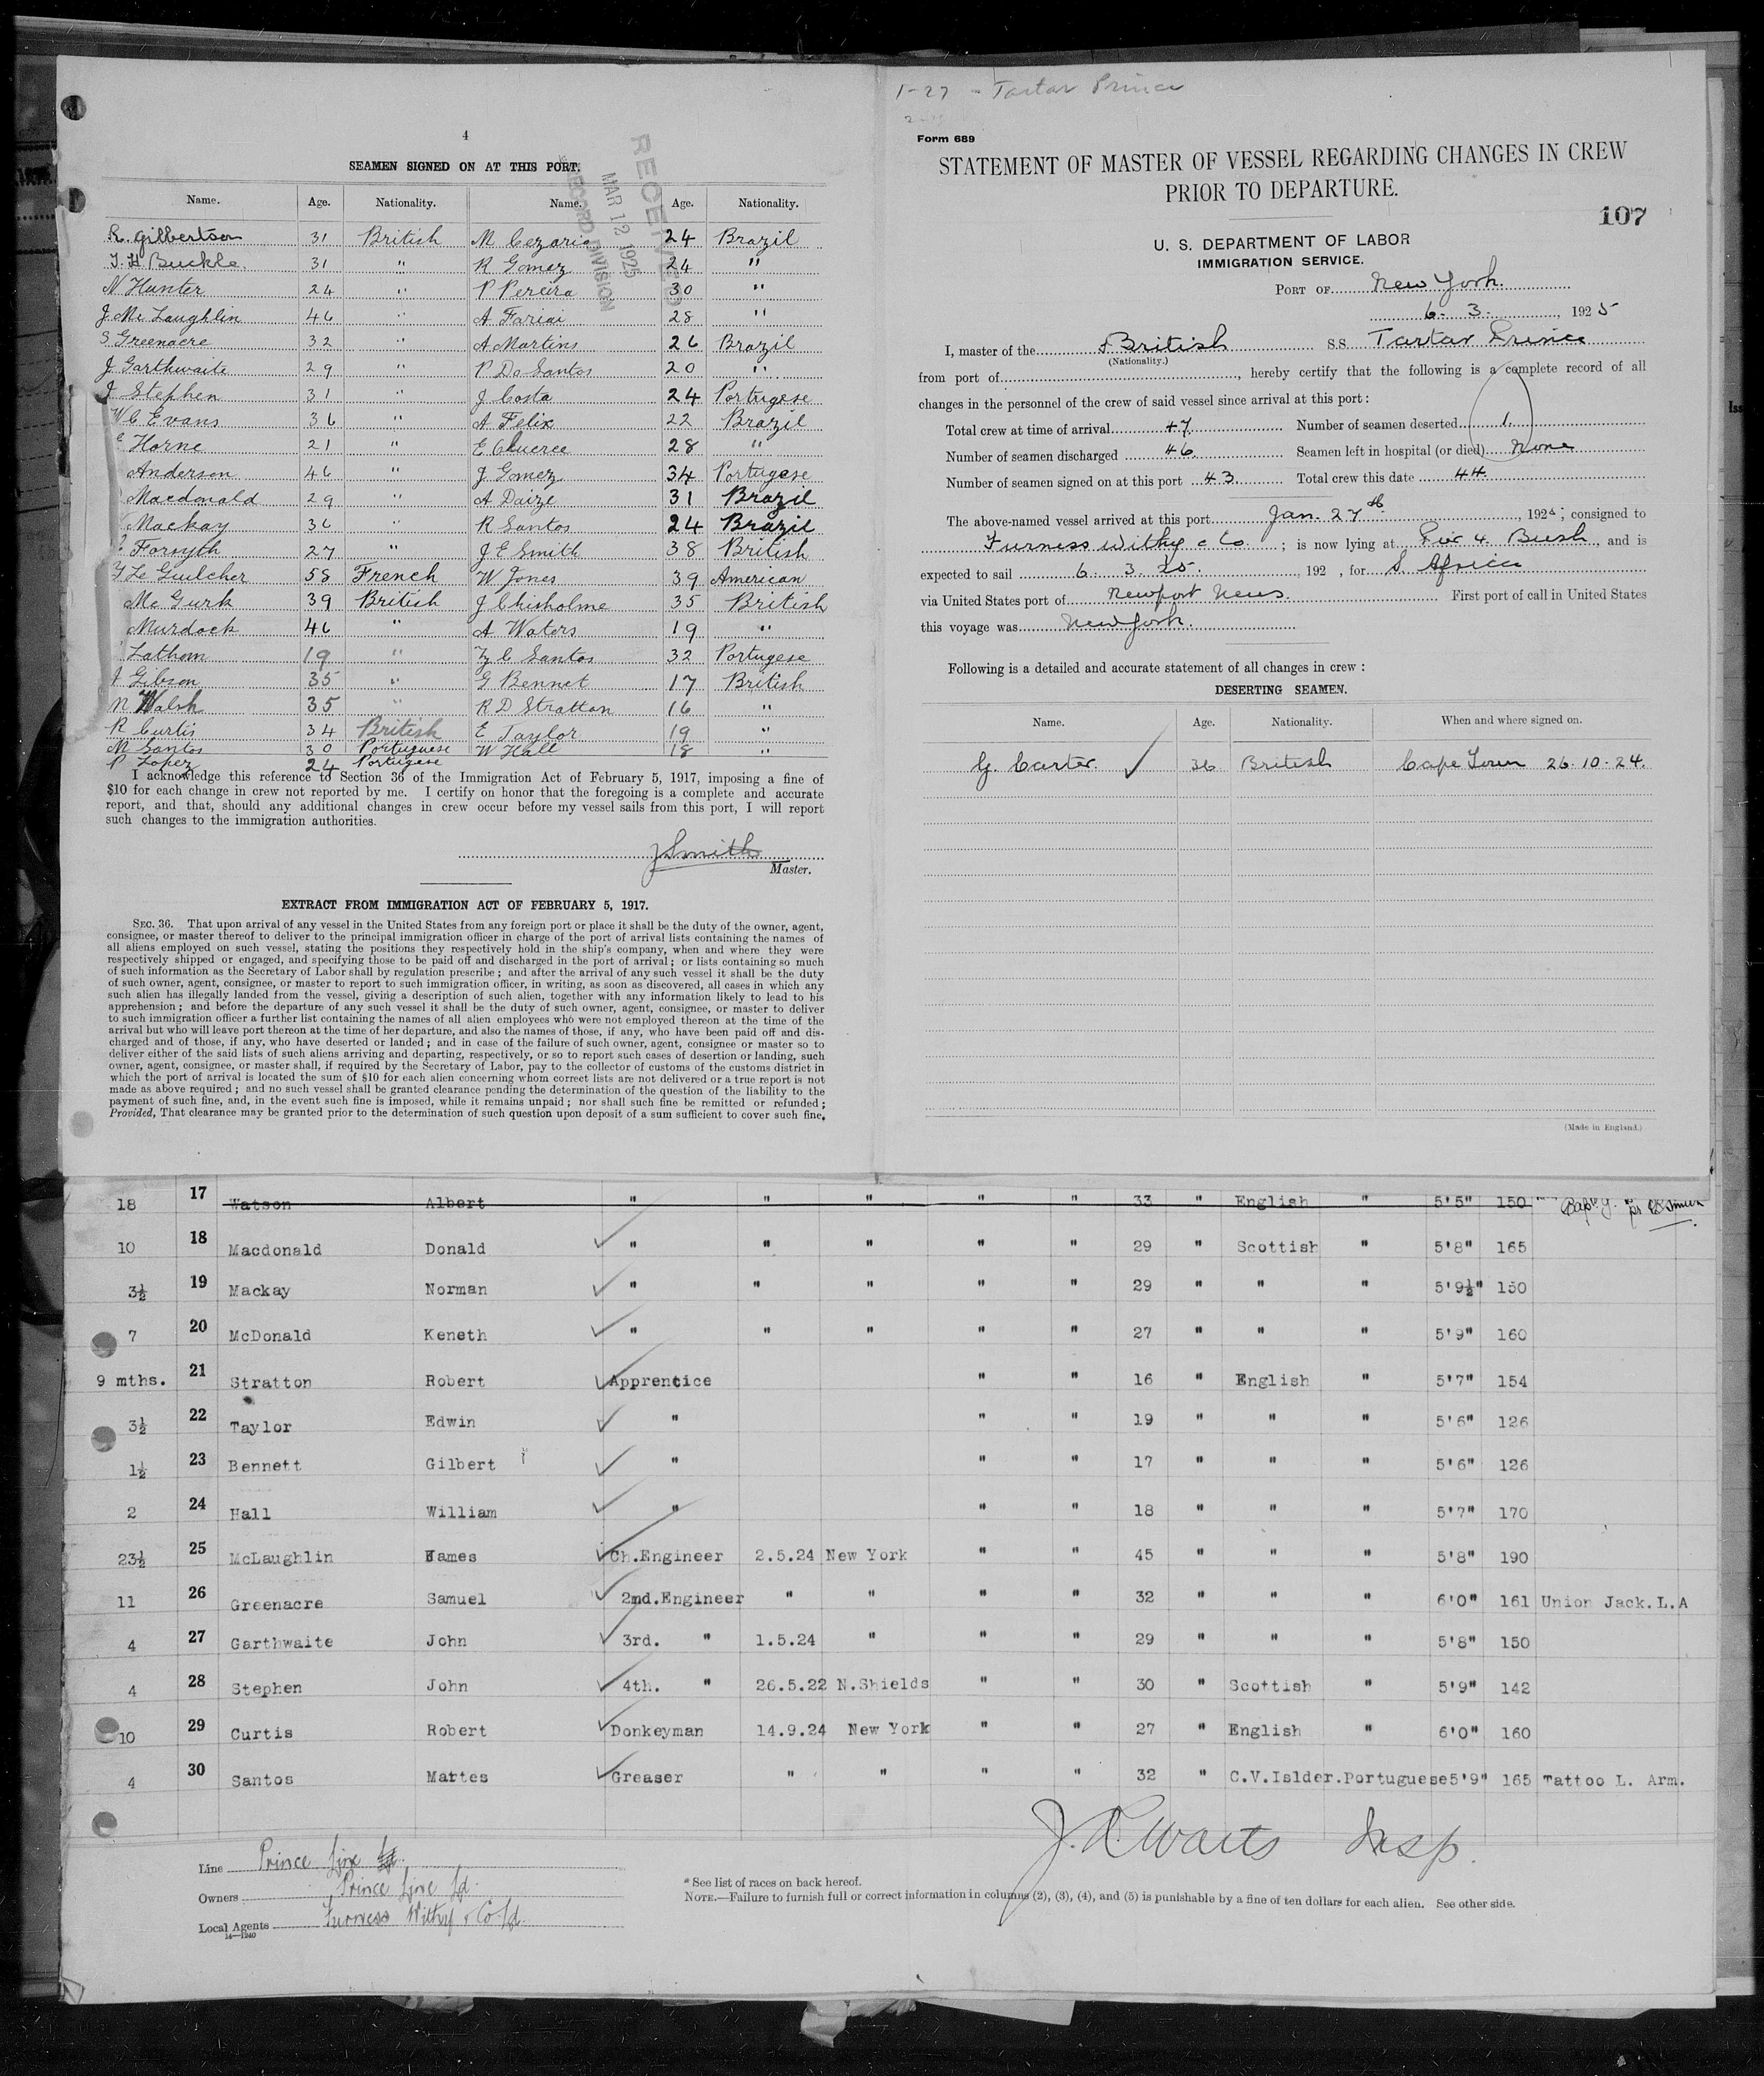 4
SEAMEN SIGNED ON AT THIS PORT.
RECEIVED
MAR 12 1925
RECORD DIVISION
Name. Age. Nationality. Name. Age. Nationality.
R. Gilbertson 31 British M Cezario 24 Brazil
T. H Buckle. 31 " R Gomez 24 "
N Hunter 24 " P Pereira 30 "
J Mc Laughlin 46 " A Fariai 28 "
S Greenacre 32 " A Martins 26 Brazil
J. Garthwaite 29 " P Do Santos 20 "
J Stephen 31 " J Costa 24 Portugese
W C Evans 36 " A Felix 22 Brazil
E Horne 21 " E 28 "
Anderson 46 " J Gomez 34 Portugese
Macdonald 29 " A Daize 31 Brazil
Mackay 36 " R Santos 24 Brazil
Forsyth 27 " J E Smith 38 British
Y Le Guilcher 58 French W Jones 39 American
Mc Gurk 39 British J Chisholme 35 British
Murdock 46 " A Waters 19 "
Lathom 19 " C Santos 32 Portugese
Gibson 35 " G Bennet 17 British
N Walsh 35 " R D Stratton 16 "
R Curtis 34 British E Taylor 19 "
M Santos 30 Portuguese W Hall 18 "
P Lopez 24 Portugese
I acknowledge this reference to Section 36 of the Immigration Act of February 5, 1917, imposing a fine of
$10 for each change in crew not reported by me. I certify on honor that the foregoing is a complete and accurate
report, and that, should any additional changes in crew occur before my vessel sails from this port, I will report
such changes to the immigration authorities.
J Smith
Master.
EXTRACT FROM IMMIGRATION ACT OF FEBRUARY 5, 1917.
SEC. 36. That upon arrival of any vessel in the United States from any foreign port or place it shall be the duty of the owner, agent,
consignee, or master thereof to deliver to the principal immigration officer in charge of the port of arrival lists containing the names of
all aliens employed on such vessel, stating the positions they respectively hold in the ship's company, when and where they were
respectively shipped or engaged, and specifying those to be paid off and discharged in the port of arrival; or lists containing so much
of such information as the Secretary of Labor shall by regulation prescribe; and after the arrival of any such vessel it shall be the duty
of such owner, agent, consignee, or master to report to such immigration officer, in writing, as soon as discovered, all cases in which any
such alien has illegally landed from the vessel, giving a description of such alien, together with any information likely to lead to his
apprehension; and before the departure of any such vessel it shall be the duty of such owner, agent, consignee, or master to deliver
to such immigration officer a further list containing the names of all alien employees who were not employed thereon at the time of the
arrival but who will leave port thereon at the time of her departure, and also the names of those, if any, who have been paid off and dis-
charged and of those, if any, who have deserted or landed; and in case of the failure of such owner, agent, consignee or master so to
deliver either of the said lists of such aliens arriving and departing, respectively, or so to report such cases of desertion or landing, such
owner, agent, consignee, or master shall, if required by the Secretary of Labor, pay to the collector of customs of the customs district in
which the port of arrival is located the sum of $10 for each alien concerning whom correct lists are not delivered or a true report is not
made as above required; and no such vessel shall be granted clearance pending the determination of the question of the liability to the
payment of such fine, and, in the event such fine is imposed, while it remains unpaid; nor shall such fine be remitted or refunded;
Provided, That clearance may be granted prior to the determination of such question upon deposit of a sum sufficient to cover such fine.
1-27 - Tartar Prince
Form 689
STATEMENT OF MASTER OF VESSEL REGARDING CHANGES IN CREW
PRIOR TO DEPARTURE.
107
U. S. DEPARTMENT OF LABOR
IMMIGRATION SERVICE.
PORT OF New York.
6. 3. , 1925
I, master of the British S.S. Tartar Prince
(Nationality.)
from port of , hereby certify that the following is a complete record of all
changes in the personnel of the crew of said vessel since arrival at this port:
Total crew at time of arrival 47 Number of seamen deserted 1.
Number of seamen discharged 46 Seamen left in hospital (or died) None
Number of seamen signed on at this port 43 Total crew this date 44
The above-named vessel arrived at this port Jan. 27th , 192 ; consigned to
Furness Withy & Co ; is now lying at Pier 4. Bush , and is
expected to sail 6. 3. 25. , 192 , for S Africa
via United States port of Newport News. First port of call in United States
this voyage was New York.
Following is a detailed and accurate statement of all changes in crew:
DESERTING SEAMEN.
Name. Age. Nationality. When and where signed on.
G. Carter. ✓ 36 British Cape Town 26.10.24.
(Made in England.)
18 17 Watson Albert " " " " " 33 " English " 5'5" 150
10 18 Macdonald Donald " " " " " 29 " Scottish " 5'8" 165
3½ 19 Mackay Norman " " " " " 29 " " " 5'9½" 150
7 20 McDonald Keneth " " " " " 27 " " " 5'9" 160
9 mths. 21 Stratton Robert Apprentice " " 16 " English " 5'7" 154
3½ 22 Taylor Edwin " " " 19 " " " 5'6" 126
1½ 23 Bennett Gilbert " " " 17 " " " 5'6" 126
2 24 Hall William " " " 18 " " " 5'7" 170
23½ 25 McLaughlin James Ch.Engineer 2.5.24 New York " " 45 " " " 5'8" 190
11 26 Greenacre Samuel 2nd.Engineer " " " " 32 " " " 6'0" 161 Union Jack.L.A
4 27 Garthwaite John 3rd. " 1.5.24 " " " 29 " " " 5'8" 150
4 28 Stephen John 4th. " 26.5.22 N.Shields " " 30 " Scottish " 5'9" 142
10 29 Curtis Robert Donkeyman 14.9.24 New York " " 27 " English " 6'0" 160
4 30 Santos Martes Greaser " " " " 32 " C.V.Islder.Portuguese 5'9" 165 Tattoo L. Arm.
J. R. Waits Insp.
Line Prince Line Ld.
Owners Prince Line Ld.
Local Agents Furness Withy & Co Ld.
14—1240
* See list of races on back hereof.
NOTE.—Failure to furnish full or correct information in columns (2), (3), (4), and (5) is punishable by a fine of ten dollars for each alien. See other side.